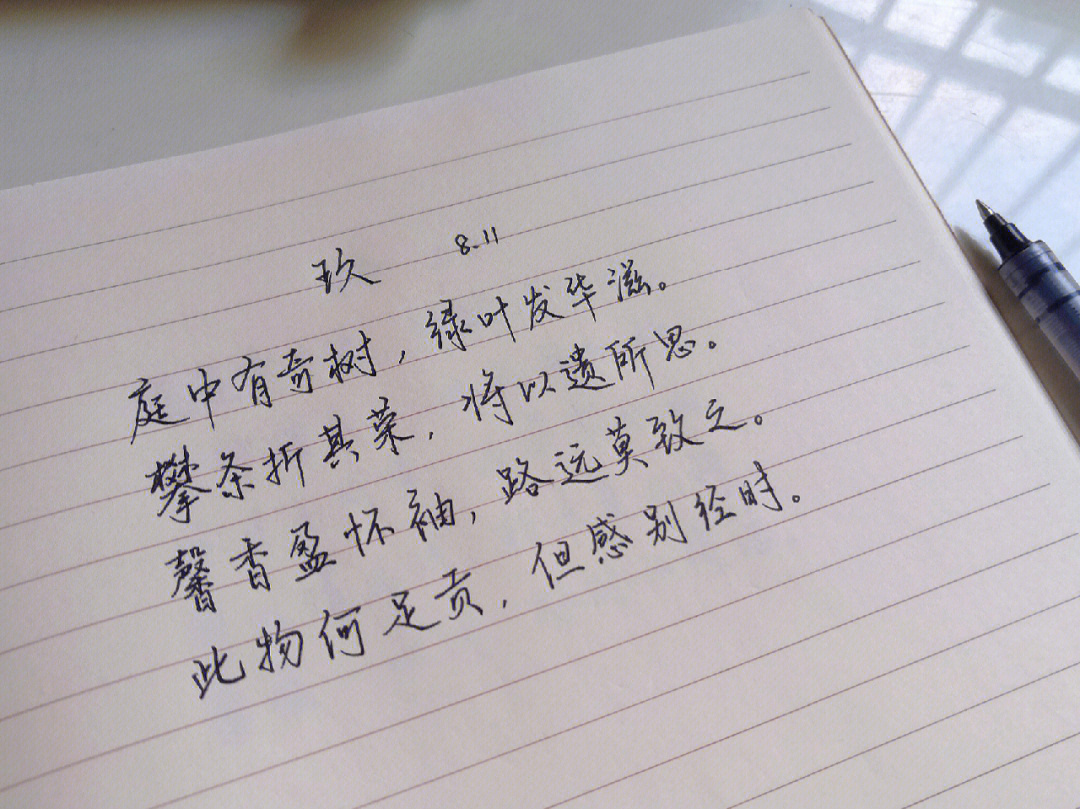 玖 8.11
庭中有奇树，绿叶发华滋。
攀条折其荣，将以遗所思。
馨香盈怀袖，路远莫致之。
此物何足贡，但感别经时。